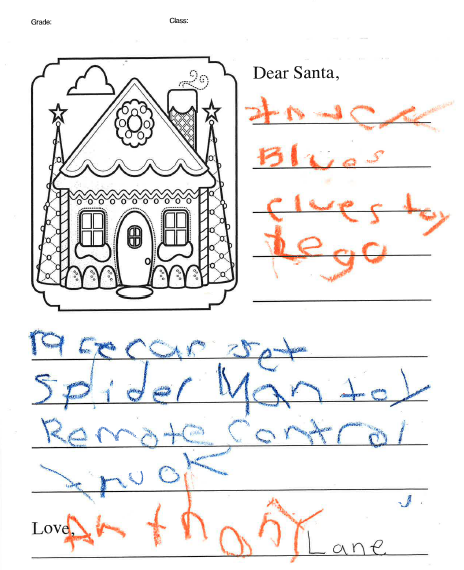 Grade:
Class:
Dear Santa,
truck
Blues
clues toy
Lego
racecar set
Spider Man toy
Remote Control
truck
Love, Anthony Lane